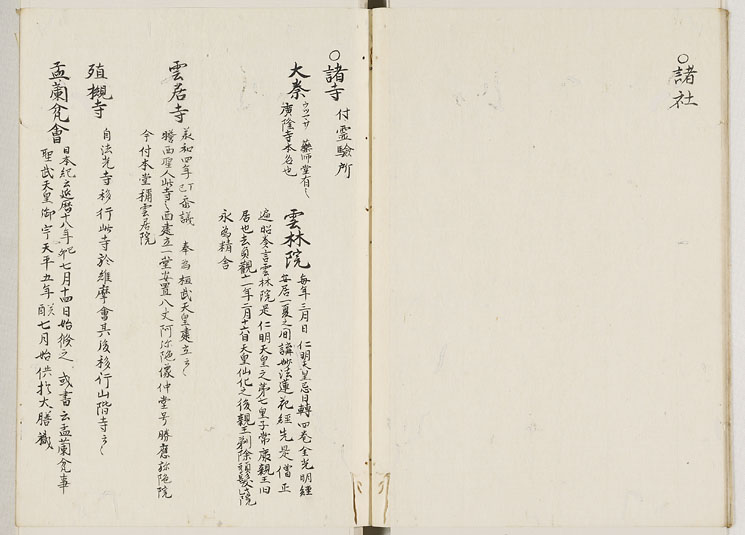 ○諸社
○諸寺 付霊驗所
大秦 ウツマサ 藥師堂有之
廣隆寺本名也
雲林院 每年三月日 仁明天皇忌日轉四卷金光明經
安居一夏之間講妙法蓮花經先是僧正
遍昭奏言雲林院是仁明天皇之第七皇子常康親王旧
居也去貞觀十一年二月十六日天皇仙化之後親王剃除頭鬂院
永為精舍
雲居寺 承和四年丁巳 参議 奉為桓武天皇建立云々
瞻西聖人此寺之西建立一堂安置八丈阿弥陀像仲堂号勝應弥陀院
今付本堂稱雲居院
殖槻寺 自法光寺移行此寺於維摩會其後移行山階寺云々
盂蘭瓫會 日本紀云延曆十八年 七月十四日始修之 或書云盂蘭瓫事
聖武天皇御宇天平五年 七月始供於大膳職